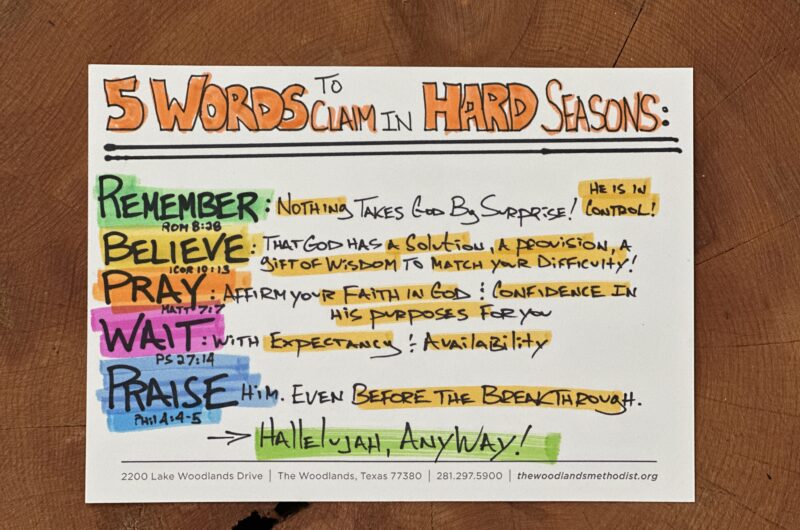 5 WORDS TO CLAIM IN HARD SEASONS:
REMEMBER: NOTHING TAKES GOD BY SURPRISE! HE IS IN CONTROL!
ROM 8:28
BELIEVE: THAT GOD HAS A SOLUTION, A PROVISION, A
GIFT OF WISDOM TO MATCH YOUR DIFFICULTY!
1COR 10:13
PRAY: AFFIRM YOUR FAITH IN GOD & CONFIDENCE IN
HIS PURPOSES FOR YOU
MATT 7:7
WAIT: WITH EXPECTANCY & AVAILABILITY
PS 27:14
PRAISE HIM. EVEN BEFORE THE BREAKTHROUGH.
Phil 4:4-5
→ HALLELUJAH, ANYWAY!
2200 Lake Woodlands Drive | The Woodlands, Texas 77380 | 281.297.5900 | thewoodlandsmethodist.org